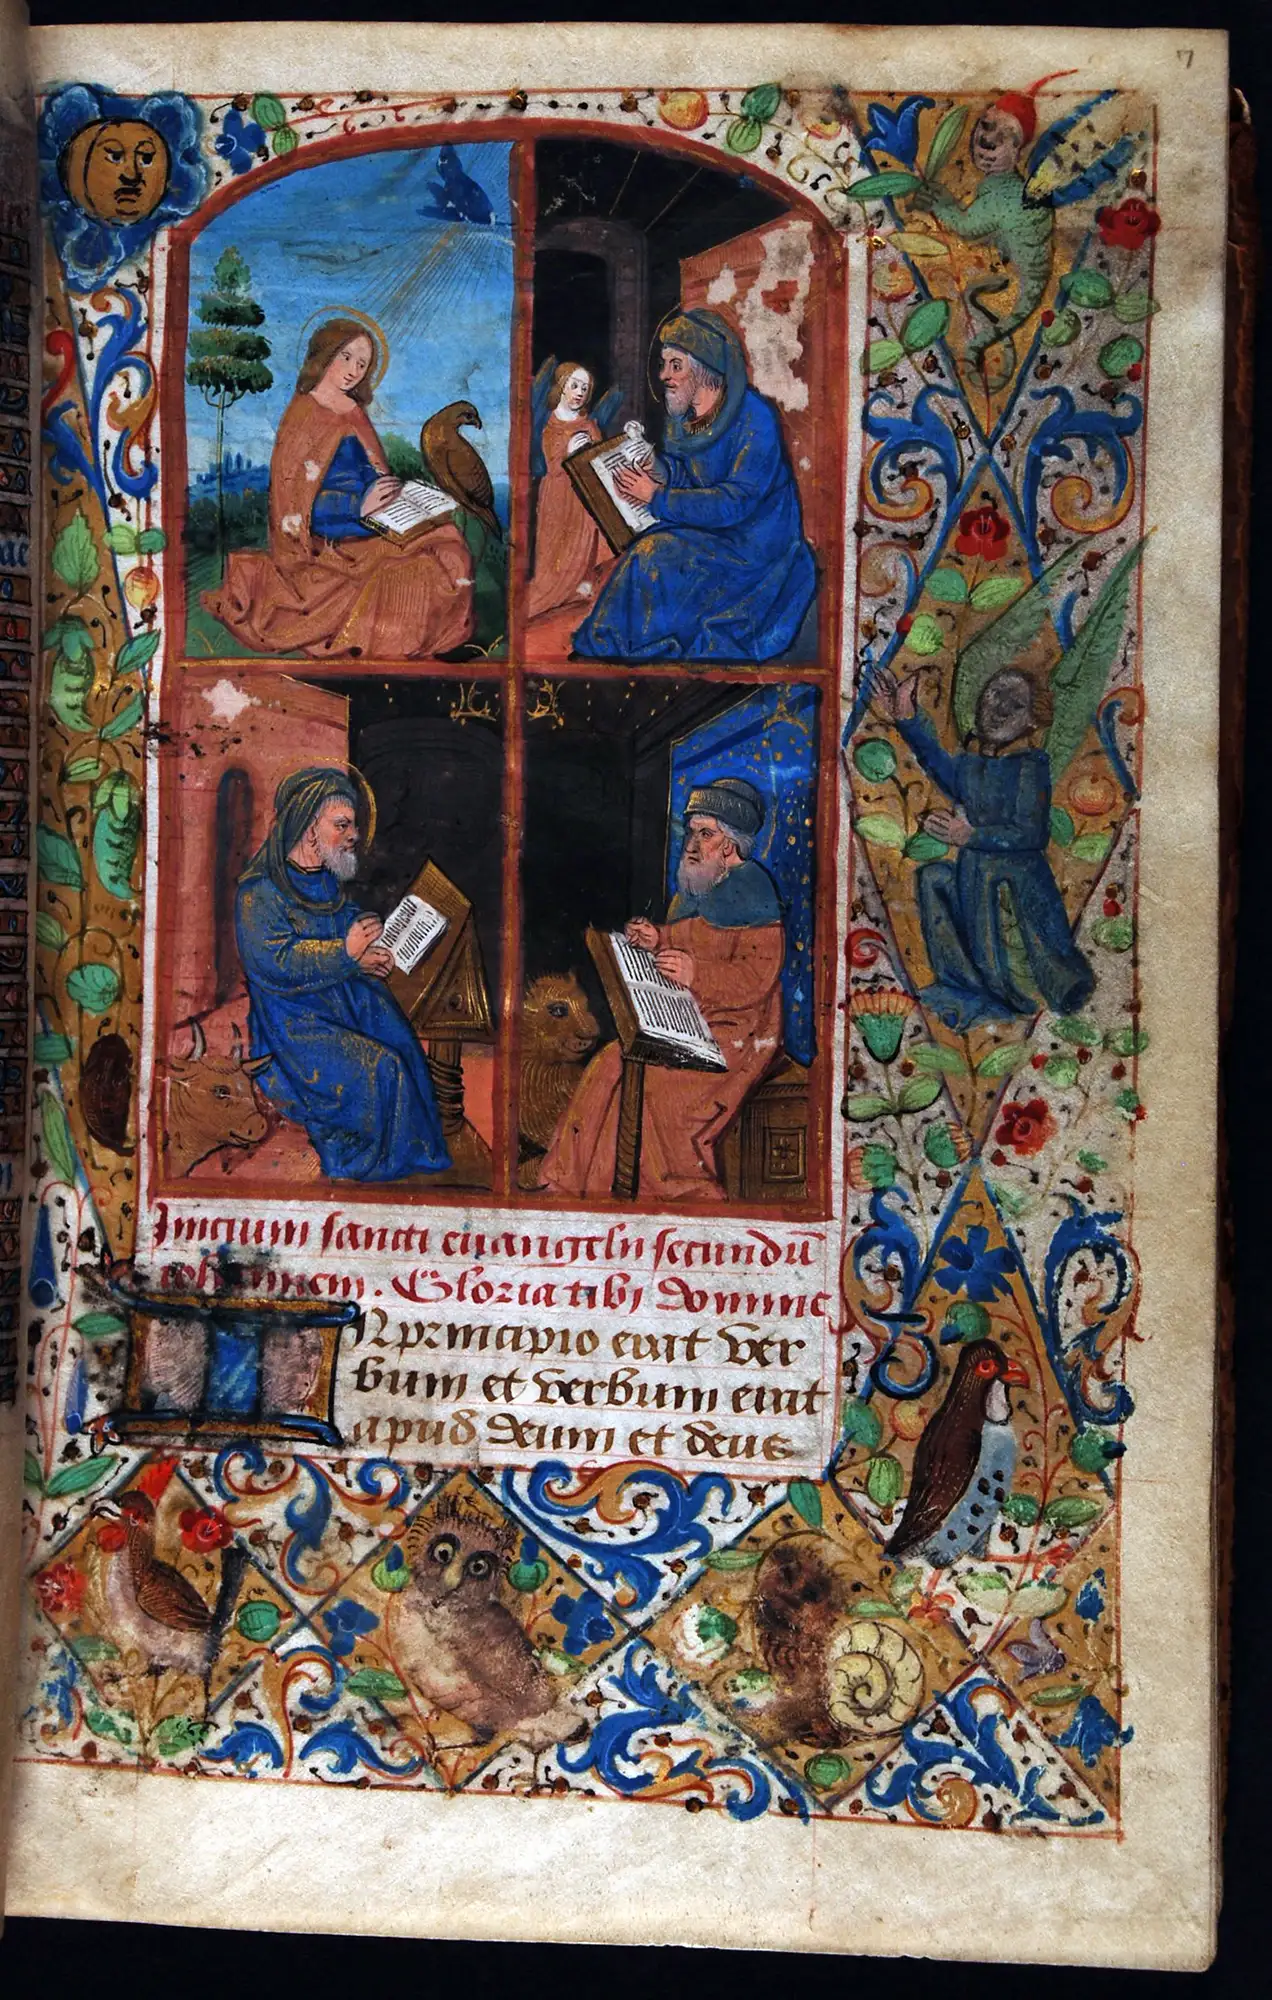 7
Inicium sancti euangelii secundū
iohannem. Gloria tibi domine
IN principio erat ver
bum et verbum erat
apud deum et deus